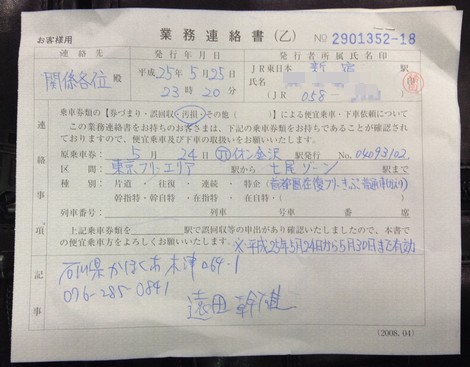 お客様用
業務連絡書(乙) № 2901352-18
連絡先 発行年月日 発行者所属氏名印
関係各位 殿 平成25年5月25日 JR東日本 新宿 駅
23時20分 氏名
(JR 058-
連絡事項
乗車券類の【券づまり・誤回収・汚損・その他( )】による便宜乗車・下車依頼について
この業務連絡書をお持ちのお客さまは、下記の乗車券類をお持ちであることが確認されておりますので、便宜乗車及び下車の取扱いをお願いいたします。
原乗車券: 5月24日 イオン金沢 駅発行 No. 04093102
区間: 東京フリーエリア 駅から 七尾ゾーン 駅まで
種別: 片道・往復・連続・特企(首都圏往復フリーきっぷ
特急・幹自特・在指特・在自特・( )
列車番号: 列車 号車 番 席
上記乗車券類が 駅で誤回収等の申出がありご確認いたしましたので、本書での便宜乗車方をよろしくお願いいたします。※平成25年5月24日から5月30日まで有効
記事
石川県かほく市木津ロ64-1
076-285-0841
遠田幹雄
(2008.04)